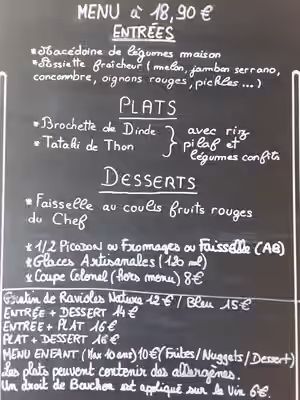 MENU à 18,90 €
ENTRÉES
*Macédoine de légumes maison
*Assiette fraîcheur (melon, jambon serrano,
concombre, oignons rouges, pickles...)
PLATS
*Brochette de Dinde
*Tataki de Thon
avec riz
pilaf et
légumes confits
DESSERTS
*Faisselle au coulis fruits rouges
du Chef
*1/2 Picodon ou Fromages ou Faisselle (AB)
*Glaces Artisanales (120 ml)
*Coupe Colonel (hors menu) 8€
Gratin de Ravioles Nature 12€ / Bleu 15€
ENTRÉE + DESSERT 14€
ENTRÉE + PLAT 16€
PLAT + DESSERT 16€
MENU ENFANT (Max 10 ans) 10€ (Frites/Nuggets/Dessert)
Les plats peuvent contenir des allergènes.
Un droit de Bouchon est appliqué sur le Vin 6€.